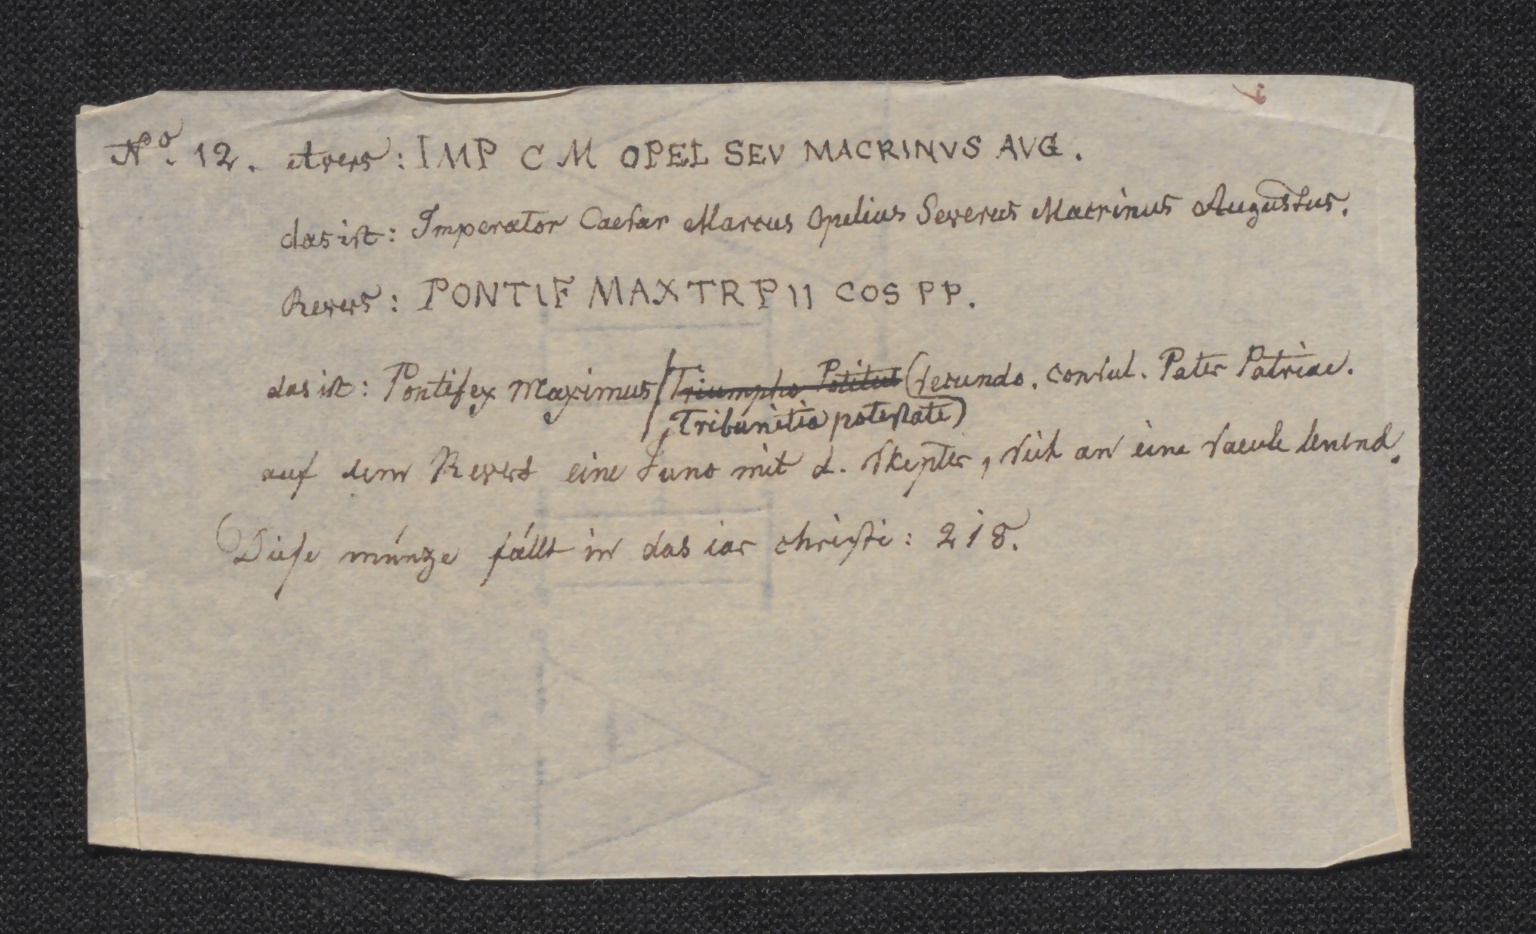 No. 12. Avers: IMP C M OPEL SEV MACRINVS AVG.
das ist: Imperator Caesar Marcus Opelius Severus Macrinus Augustus.
Revers: PONTIF MAX TR P II COS PP.
das ist: Pontifex Maximus Triumpho Potitus (secundo. consul. Pater Patriae.
Tribunitia potestate)
auf dem Revers eine Juno mit d. Skepter, sich an eine saeule lenend.
Diese münze fällt in das iar christi: 218.